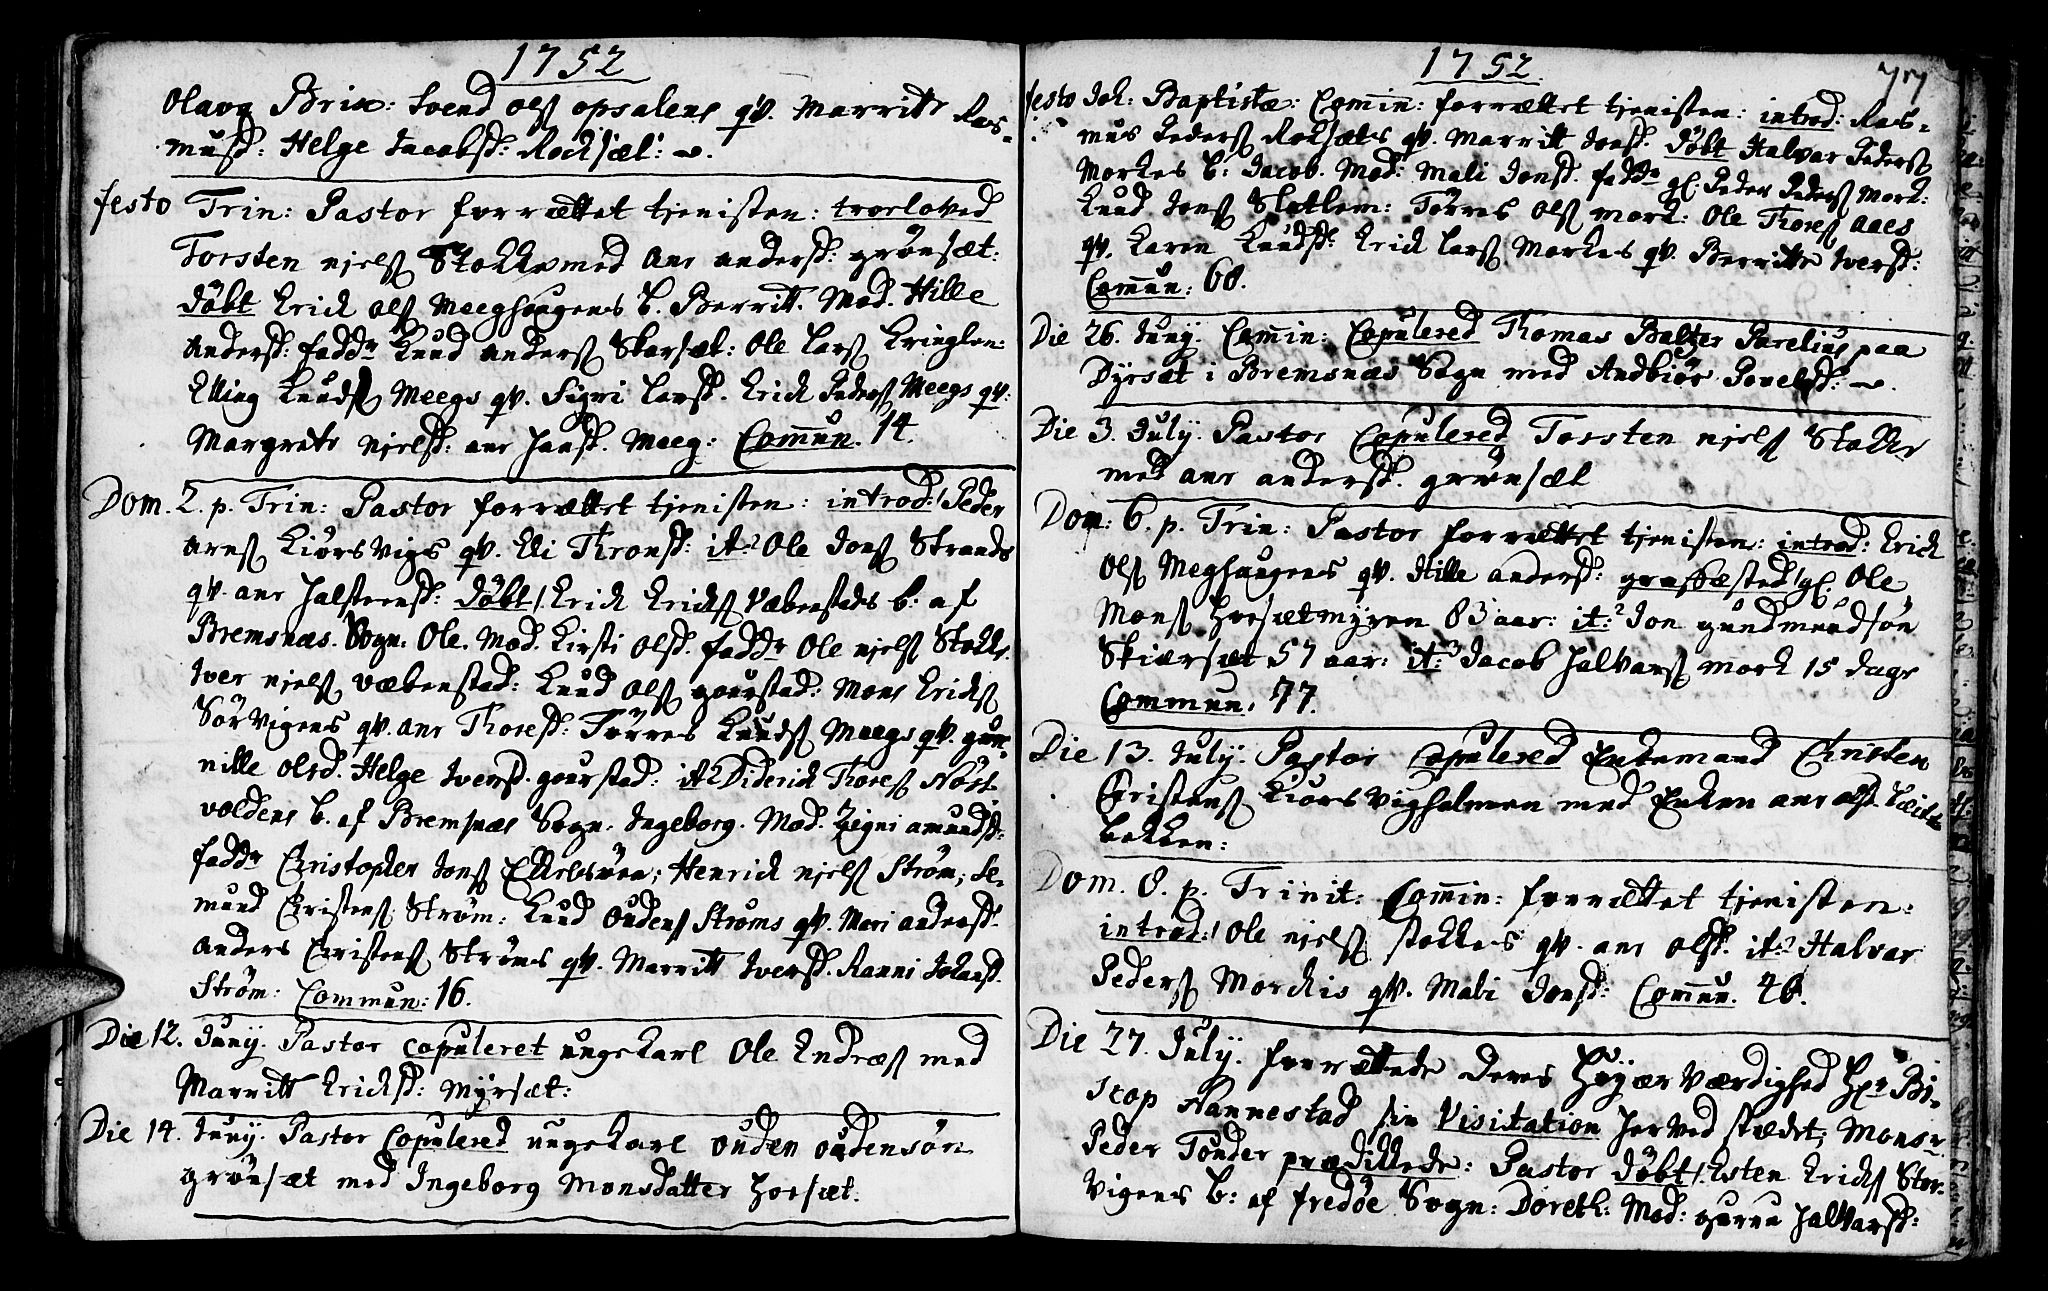 1752
Olava Brix: Svend Ols opsalens qv. Marritt Ras-
musd: Helge Jacobsd: Rocksæt:
festo Trin: Pastor forrættet tjenisten: troeloved
Torsten njels Stokke med Ane andersd: grönsæt:
döbt Erick ols Meeghougens b. Berritt. Mod. Hille
Andersd: fadd Knud anders Skarsæt: Ole Lars Kringlen:
Elling Knuds Meegs qv. Sigri Larsd. Erick Peders Meegs qv:
Margrete njelsd: ane Hansd. Meeg: Commun. 14.
Dom. 2. p. Trin: Pastor forrættet tjenisten: introd: Peder
arns Kiörsvigs qv. Eli Thronsd: it: Ole Jons Strands
qv. ane Halstensd: döbt Erick Ericks Væbenstads b: af
Bremsnæs Sogn: Ole. Mod. Kirsti Olsd. fadd Ole njels Stokk.
Iver njels væbenstad: Knud ols gourstad: Mons Ericks
Sörvigens qv. ane Thoresd: Törres Knuds Meegs qv. gun-
nille olsd. Helge Iversd. gourstad: it. Diderich Thores Nöst
voldens b. af Bremsnæs Sogn: Ingeborg. Mod. Zigni amundsd:
fadd Christopher Jons Ekkelsöen; Henrick njels Ström; Se-
mund Christens Ström: Knud Oudens Ströms qv. Mari andersd.
Anders Christens Ströms qv. Marritt Iversd. Ranni Johansd.
Ström: Commun: 16.
Die 12. Juny. Pastor copuleret ungekarl Ole Endræs med
Marritt Ericksd: Myrsæt:
Die 14. Juny. Pastor Copulered ungekarl Ouden oudensön
grönsæt med Ingeborg Monsdatter Horsæt.
1752. 77
festo Joh: Baptistæ: Comin: forrættet tjenisten: introd: Ras-
mus Peders Roksæts qv. Marritt Jonsd. döbt Halvar Peders
Morkes b: Jacob. Mod: Mali Jonsd. fadd gl. Peder Peders Mork:
Knud Jons Slatlem: Törres ols mork: Ole Thores Aaes
qv. Karen Knudsd: Erick Lars Morkes qv. Berritte Iversd:
Commun: 68.
Die 26. Juny. Comin: Copulered Thomas Balzer Parelius paa
Dyrsæt i Bremsnæs Sogn med Andbiör Povelsd:
Die 3. July. Pastor Copulered Torsten njels Stokke
med ane andersd. grönsæt
Dom: 6. p. Trin: Pastor forrættet tjenisten: introd: Erick
Ols Meghougens qv. Hille andersd: grafæsted gl. Ole
Mons Horsætmyren 83 aar: it: 2 Jon gundmundsön
Skiærsæt 57 aar: it: 3 Jacob Halvars mork 15 dage
Commun: 77.
Die 13. July. Pastor Copulered Enkemand Christen
Christens Kiörsvigholmen med Enken ane olsd.
bakken:
Dom. 8. p. Trinit: Comin: forrættet tjenisten:
introd: Ole njels stokkes qv. ane olsd. it: Halvar
Peders Morckis qv. Mali Jonsd: Commun. 46.
Die 27. July. forrættede Deres Höyærværdighed H Bi-
scop Nannestad sin Visitation her ved stædet, Monsr
Peder Tönder prædikkede: Pastor döbt Esten Ericks Stor-
vigens b: af fredöe Sogn: Doreth: Mod: guruu Halvarsd: